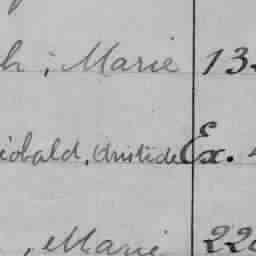 h, Marie 13
iobald, Aristide Ex.
, Marie 22